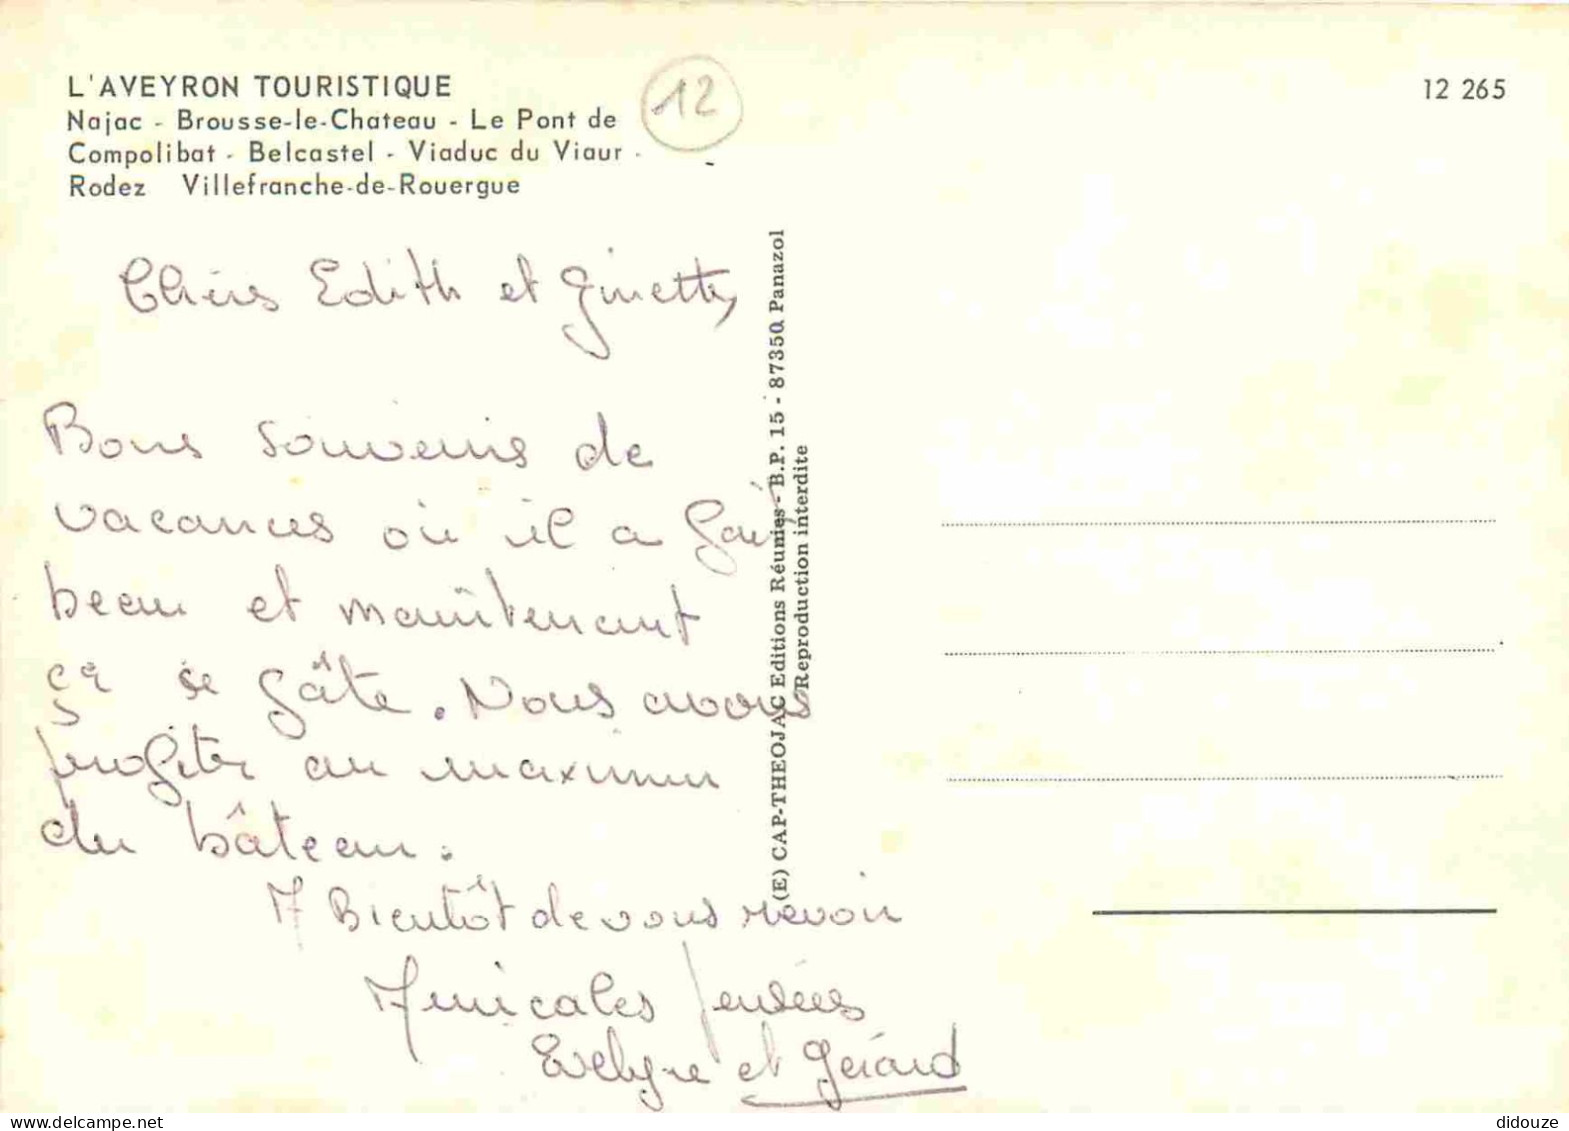 L'AVEYRON TOURISTIQUE
Najac - Brousse-le-Chateau - Le Pont de
Compolibat - Belcastel - Viaduc du Viaur -
Rodez Villefranche-de-Rouergue
12
12 265
Chères Edith et Ginette,
Bons souvenirs de
vacances où il a fait
beau et maintenant
ça se gâte. Nous avons
profiter au maximum
du bâteau.
A Bientôt de vous revoir
Amicales pensées
Evelyne et Gérard
(E) CAP-THEOJAC Editions Réunies - B.P. 15 - 87350 Panazol
Reproduction interdite
didouze